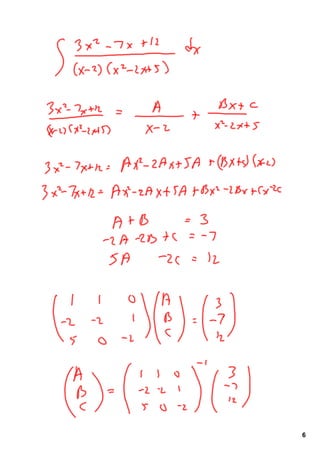 ∫ (3x² - 7x + 12)/((x-2)(x²-2x+5)) dx
(3x²-7x+12)/((x-2)(x²-2x+5)) = A/(x-2) + (Bx+C)/(x²-2x+5)
3x²-7x+12 = Ax²-2Ax+5A + (Bx+c)(x-2)
3x²-7x+12 = Ax²-2Ax+5A+Bx²-2Bx+Cx-2C
A+B = 3
-2A -2B +C = -7
5A -2C = 12
(1 1 0; -2 -2 1; 5 0 -2)(A; B; C) = (3; -7; 12)
(A; B; C) = (1 1 0; -2 -2 1; 5 0 -2)⁻¹ (3; -7; 12)
6